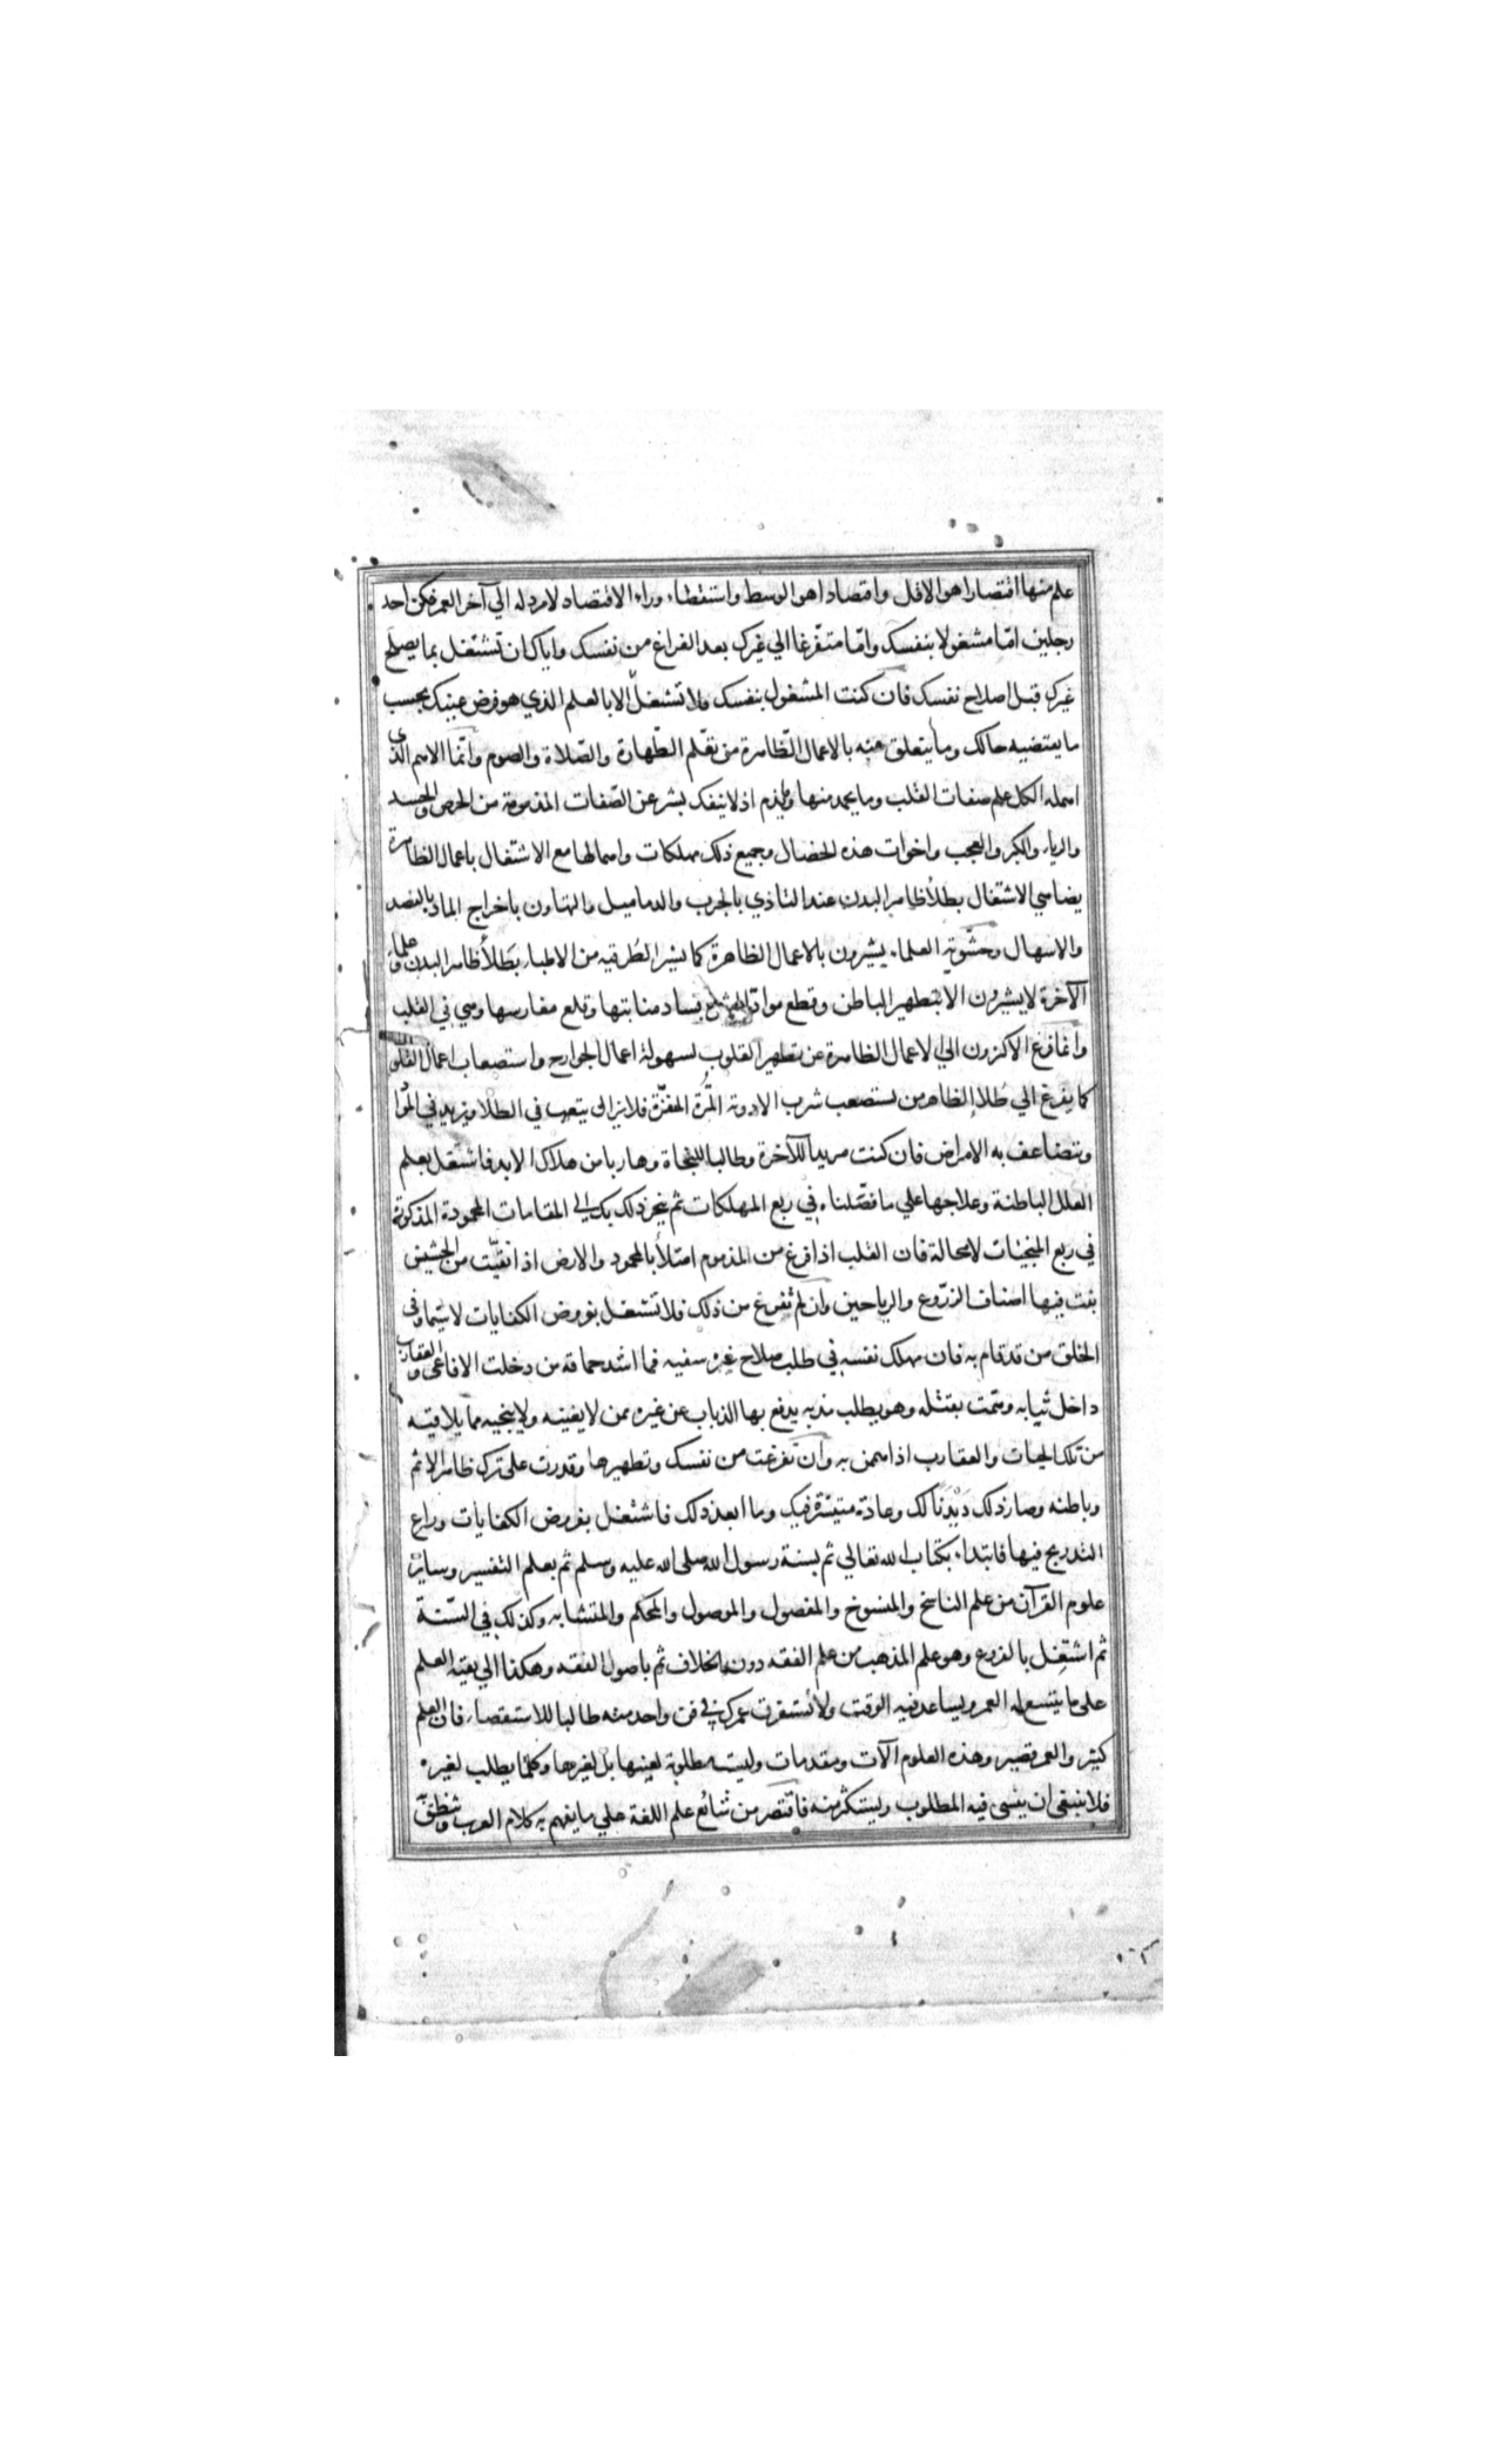 علم منها اقتصارا هو الاقل واقتصادا هو الوسط واستقصاء وراء الاقتصاد لا مرد له الي آخر العمر فكن احد
رجلين امّا مشغولا بنفسك وامّا متفرّغا الي غيرك بعد الفراغ من نفسك واياك ان تشتغل بما يصلح
غيرك قبل اصلاح نفسك فان كنت المشغول بنفسك فلا تشتغل الا بالعلم الذي هو فرض عينك بحسب
ما يقتضيه حالك وما يتعلق منه بالاعمال الظّاهرة من تعلّم الطّهارة والصّلاة والصوم وانّما الاهم الذي
اهمله الكل علم صفات القلب وما يحمد منها وما يذم اذ لا ينفك بشر عن الصّفات المذمومة من الحرص والحسد
والرياء والكبر والعجب واخوات هذه الخصال وجميع ذلك مهلكات واهمالها مع الاشتغال باعمال الظاهرة
يضاهي الاشتغال بطلاء ظاهر البدن عند التاذي بالجرب والدماميل والتهاون باخراج المادة بالفصد
والاسهال وحشويّة العلماء يشيرون بالاعمال الظاهرة كما يشير الطرقيه من الاطباء بطلاء ظاهر البدن وعلماء
الآخرة لا يشيرون الا بتطهير الباطن وقطع موادّ الشر بفساد منابتها وقلع مغارسها وهي في القلب
وانما فزع الاكثرون الي الاعمال الظاهرة عن تطهير القلوب لسهولة اعمال الجوارح واستصعاب اعمال القلوب
كما يفزع الي طلاء الظاهر من يستصعب شرب الادوية المرّة فلا يزال يتعب في الطلا ويزيد في المواد
وتتضاعف به الامراض فان كنت مريدا للآخرة وطالبا للنجاة وهاربا من هلاك الابد فاشتغل بعلم
العلل الباطنة وعلاجها علي ما فصّلناه في ربع المهلكات ثم ينجر ذلك بك الي المقامات المحمودة المذكورة
في ربع المنجيات لا محالة فان القلب اذا فرغ من المذموم امتلأ بالمحمود والارض اذا نقيّت من الحشيش
نبت فيها اصناف الزرّوع والرياحين وان لم تفرغ من ذلك فلا تشتغل بفروض الكفايات لا سيّما وفي
الخلق من قد قام به فان مهلك نفسه في طلب صلاح غيره سفيه فما اشد حماقة من دخلت الافاعي والعقارب
داخل ثيابه وهمّت بقتله وهو يطلب مذبه يدفع بها الذباب عن غيره ممن لا يغنيه ولا ينجيه مما يلاقيه
من تلك الحيات والعقارب اذا همت به وان تفرغت من نفسك وتطهيرها وقدرت على ترك ظاهر الاثم
وباطنه وصار ذلك ديدنا لك وعادة متيسّرة فيك وما ابعد ذلك فاشتغل بفروض الكفايات وراع
التدريج فيها فابتداء بكتاب الله تعالي ثم بسنة رسول الله صلى الله عليه وسلم ثم بعلم التفسير وسائر
علوم القرآن من علم الناسخ والمنسوخ والمفصول والموصول والمحكم والمتشابه وكذلك في السّنة
ثم اشتغل بالفروع وهو علم المذهب من علم الفقه دون الخلاف ثم باصول الفقه وهكذا الي بقية العلم
على ما يتسع له العمر ويساعد فيه الوقت ولا تستغرق عمرك في فن واحد منه طالبا للاستقصاء فان العلم
كثير والعمر قصير وهذه العلوم آلات ومقدمات وليست مطلوبة لعينها بل لغيرها وكلما يطلب لغيره
فلا ينبغي ان ينسى فيه المطلوب ويستكثر منه فاقتصر من شائع علم اللغة علي ما يفهم به كلام العرب وتنطق